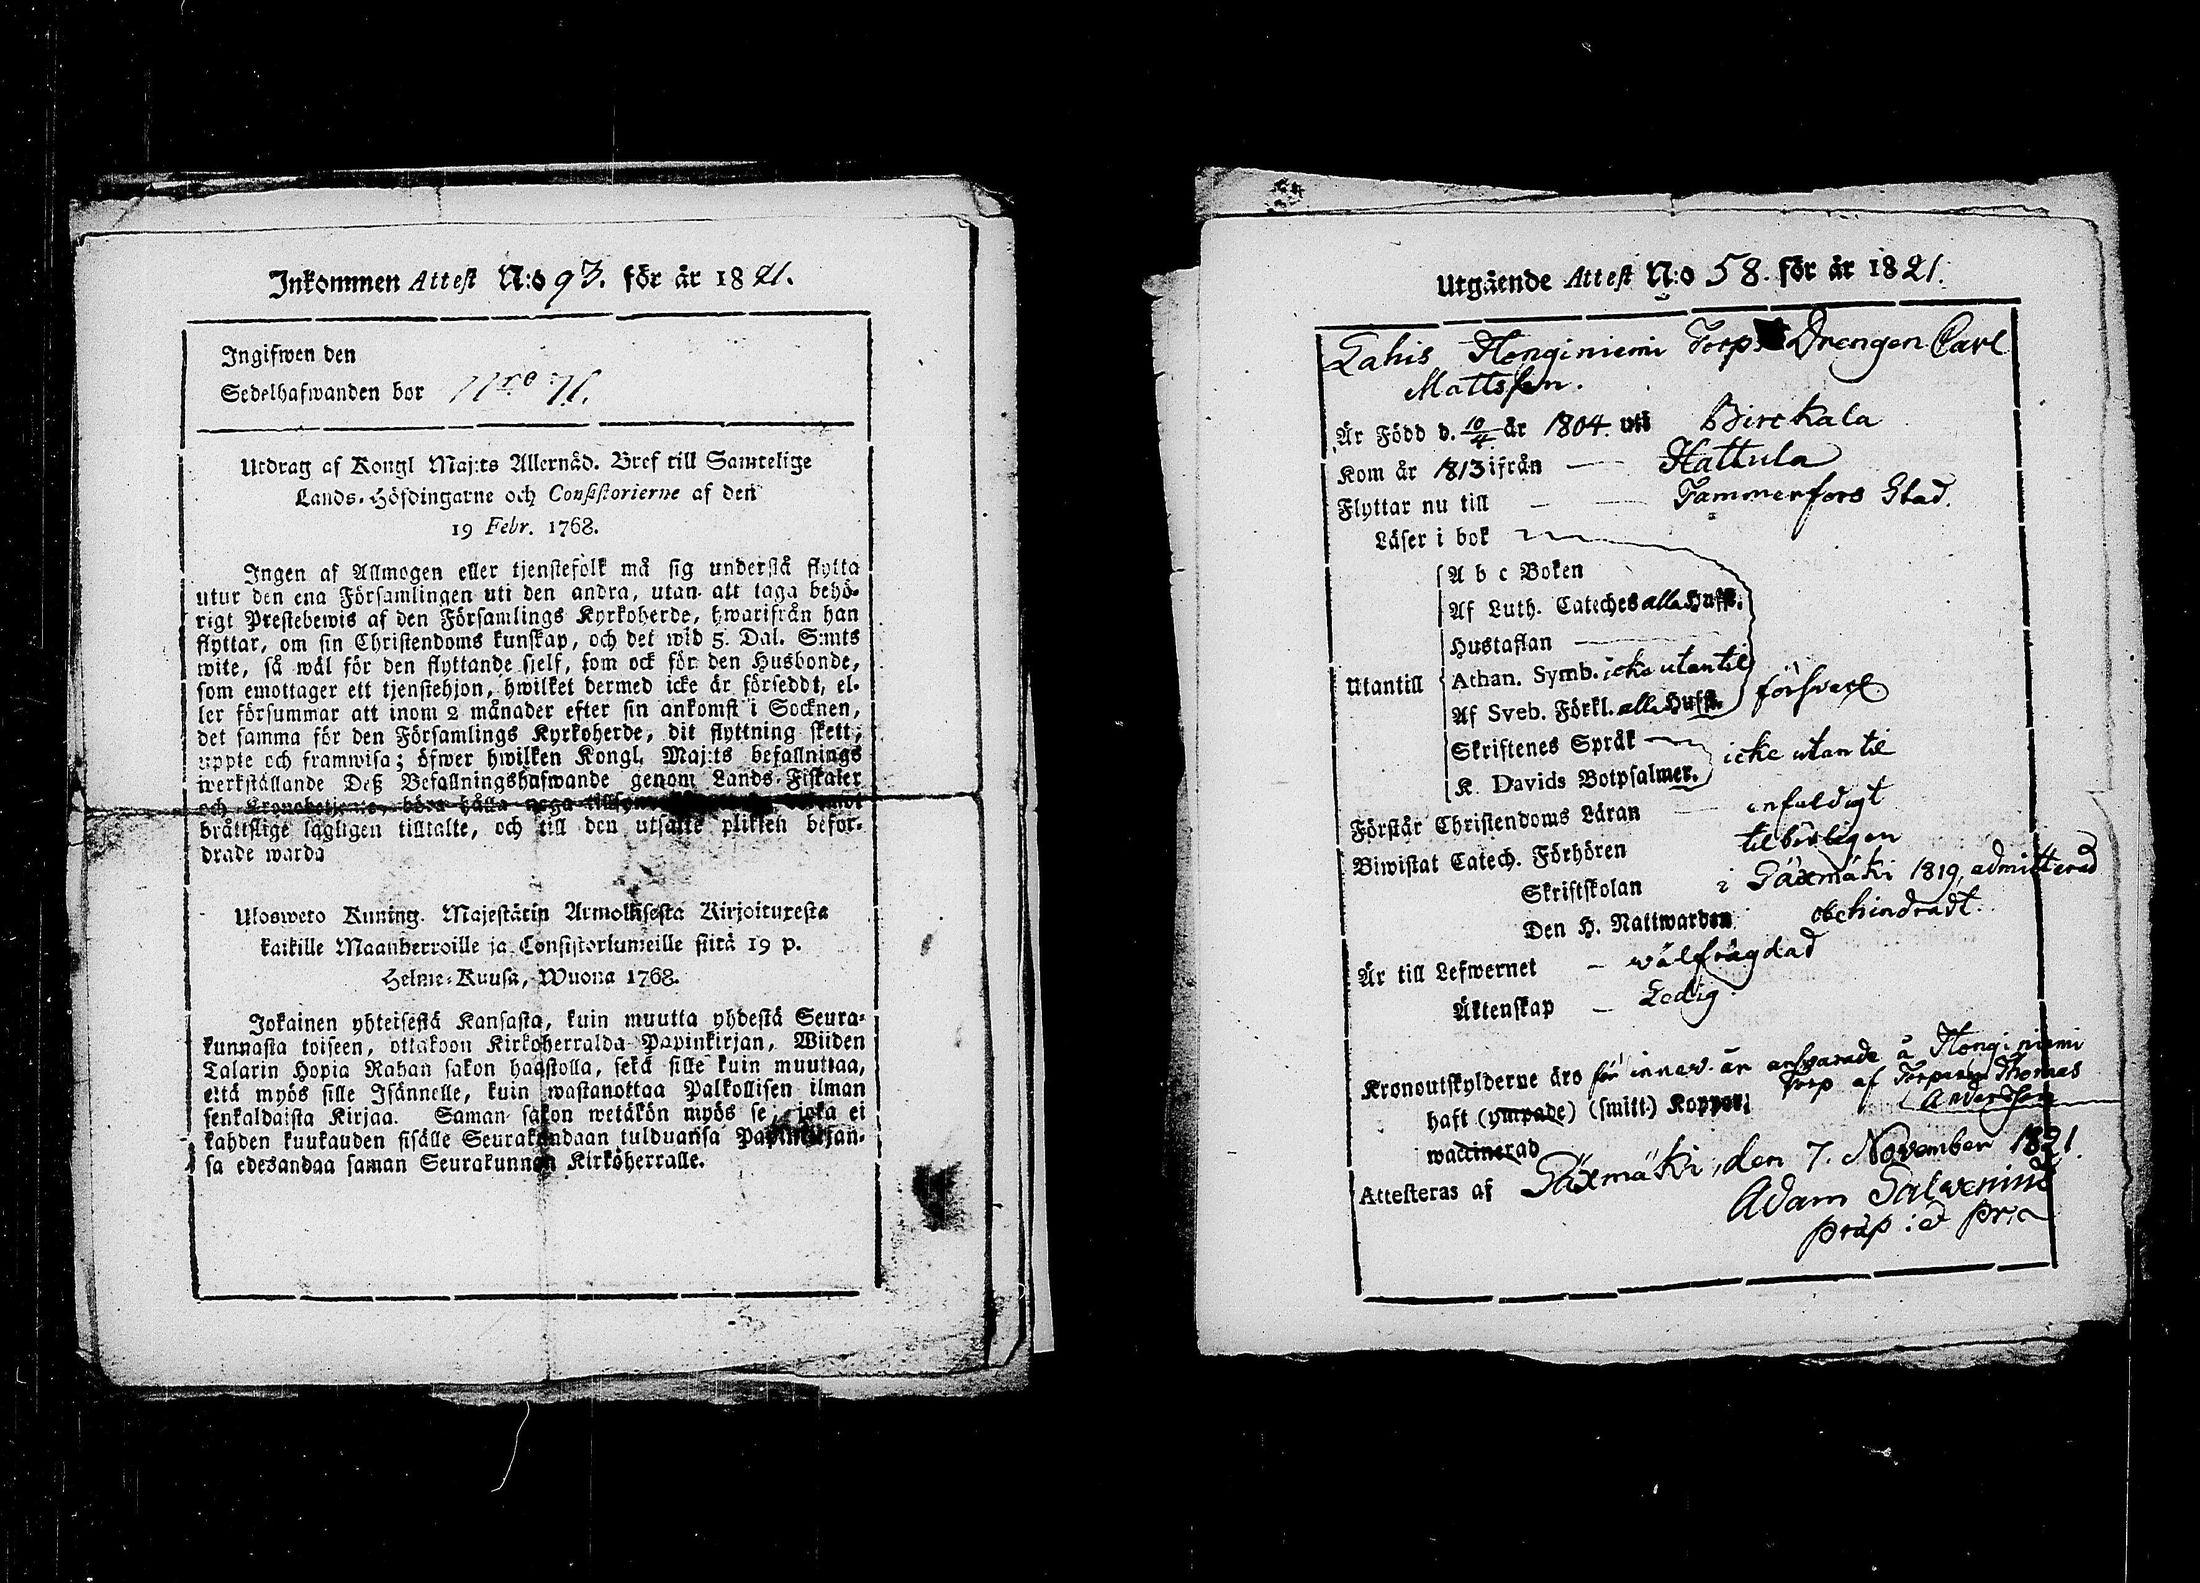 Inkommen Attest N:o 93. för år 1821.
Ingifwen den
Sedelhafwanden bor Nro 71.
Utdrag af Kongl Maj:ts Allernåd. Bref till Samtelige
Lands-Höfdingarne och Consistorierne af den
19 Febr. 1768.
Ingen af Allmogen eller tjenstefolk må sig understå flytta
utur den ena Församlingen uti den andra, utan att taga behö-
rigt Prestebewis af den Församlings Kyrkoherde, hwarifrån han
flyttar, om sin Christendoms kunskap, och det wid 5. Dal. S:mts
wite, så wäl för den flyttande sjelf, som ock för den Husbonde,
som emottager ett tjenstehjon, hwilket dermed icke är försedt, el-
ler försummar att inom 2 månader efter sin ankomst i Socknen,
det samma för den Församlings Kyrkoherde, dit flyttning skett,
uppte och framwisa; öfwer hwilken Kongl. Maj:ts befallnings
werkställande Deß Befallningshafwande genom Lands-Fiskaler
och Kronobetjente, böra hålla noga
bråttslige lagligen tilltalte, och till den utsatte plikten befor-
drade warda
Ulosweto Kuning. Majestätin Armollisesta Kirjoituxesta
kaikille Maanherroille ja Consistoriumeille siitä 19 p.
Helme-Kuusa, Wuona 1768.
Jokainen yhteisestä Kansasta, kuin muutta yhdestä Seura-
kunnasta toiseen, ottakoon Kirkoherralda Papinkirjan, Wiiden
Talarin Hopia Rahan sakon haastolla, sekä sille kuin muuttaa,
että myös sille Isännelle, kuin wastanottaa Palkollisen ilman
senkaldaista Kirjaa. Saman sakon wetäkön myös se, joka ei
kahden kuukauden sisälle Seurakundaan tulduansa Papinkirjan-
sa edesandaa saman Seurakunnan Kirköherralle.
Utgående Attest N:o 58. för år 1821.
Lahis Honginiemi Torp Drengen Carl
Mattsson.
Är Född d. 10/4 år 1804. uti Birckala
Kom år 1813 ifrån Hattula
Flyttar nu till Tammerfors Stad.
Läser i bok
A b c Boken
Af Luth. Cateches alla Hufst.
Hustaflan
Utantill Athan. Symb. icke utantil
Af Sveb. Förkl. alla Hufst. försvarl.
Skriftenes Språk
icke utantil
K. Davids Botpsalmer.
Förstår Christendoms Läran enfaldigt
Biwistat Catech. Förhören tilbörligen
Skriftskolan i Säxmäki 1819, admitterad
Den H. Nattwarden obehindradt.
Är till Lefwernet wälfrägdad
Äktenskap Ledig
Kronoutskylderne äro för innew. år ansvarade å Honginiemi
Torp af Torparen Thomas
Andersson
haft (ympade) (smitt.) Koppor,
waccinerad
Attesteras af Säxmäki, den 7. November 1821.
Adam Salvenius
præp: et